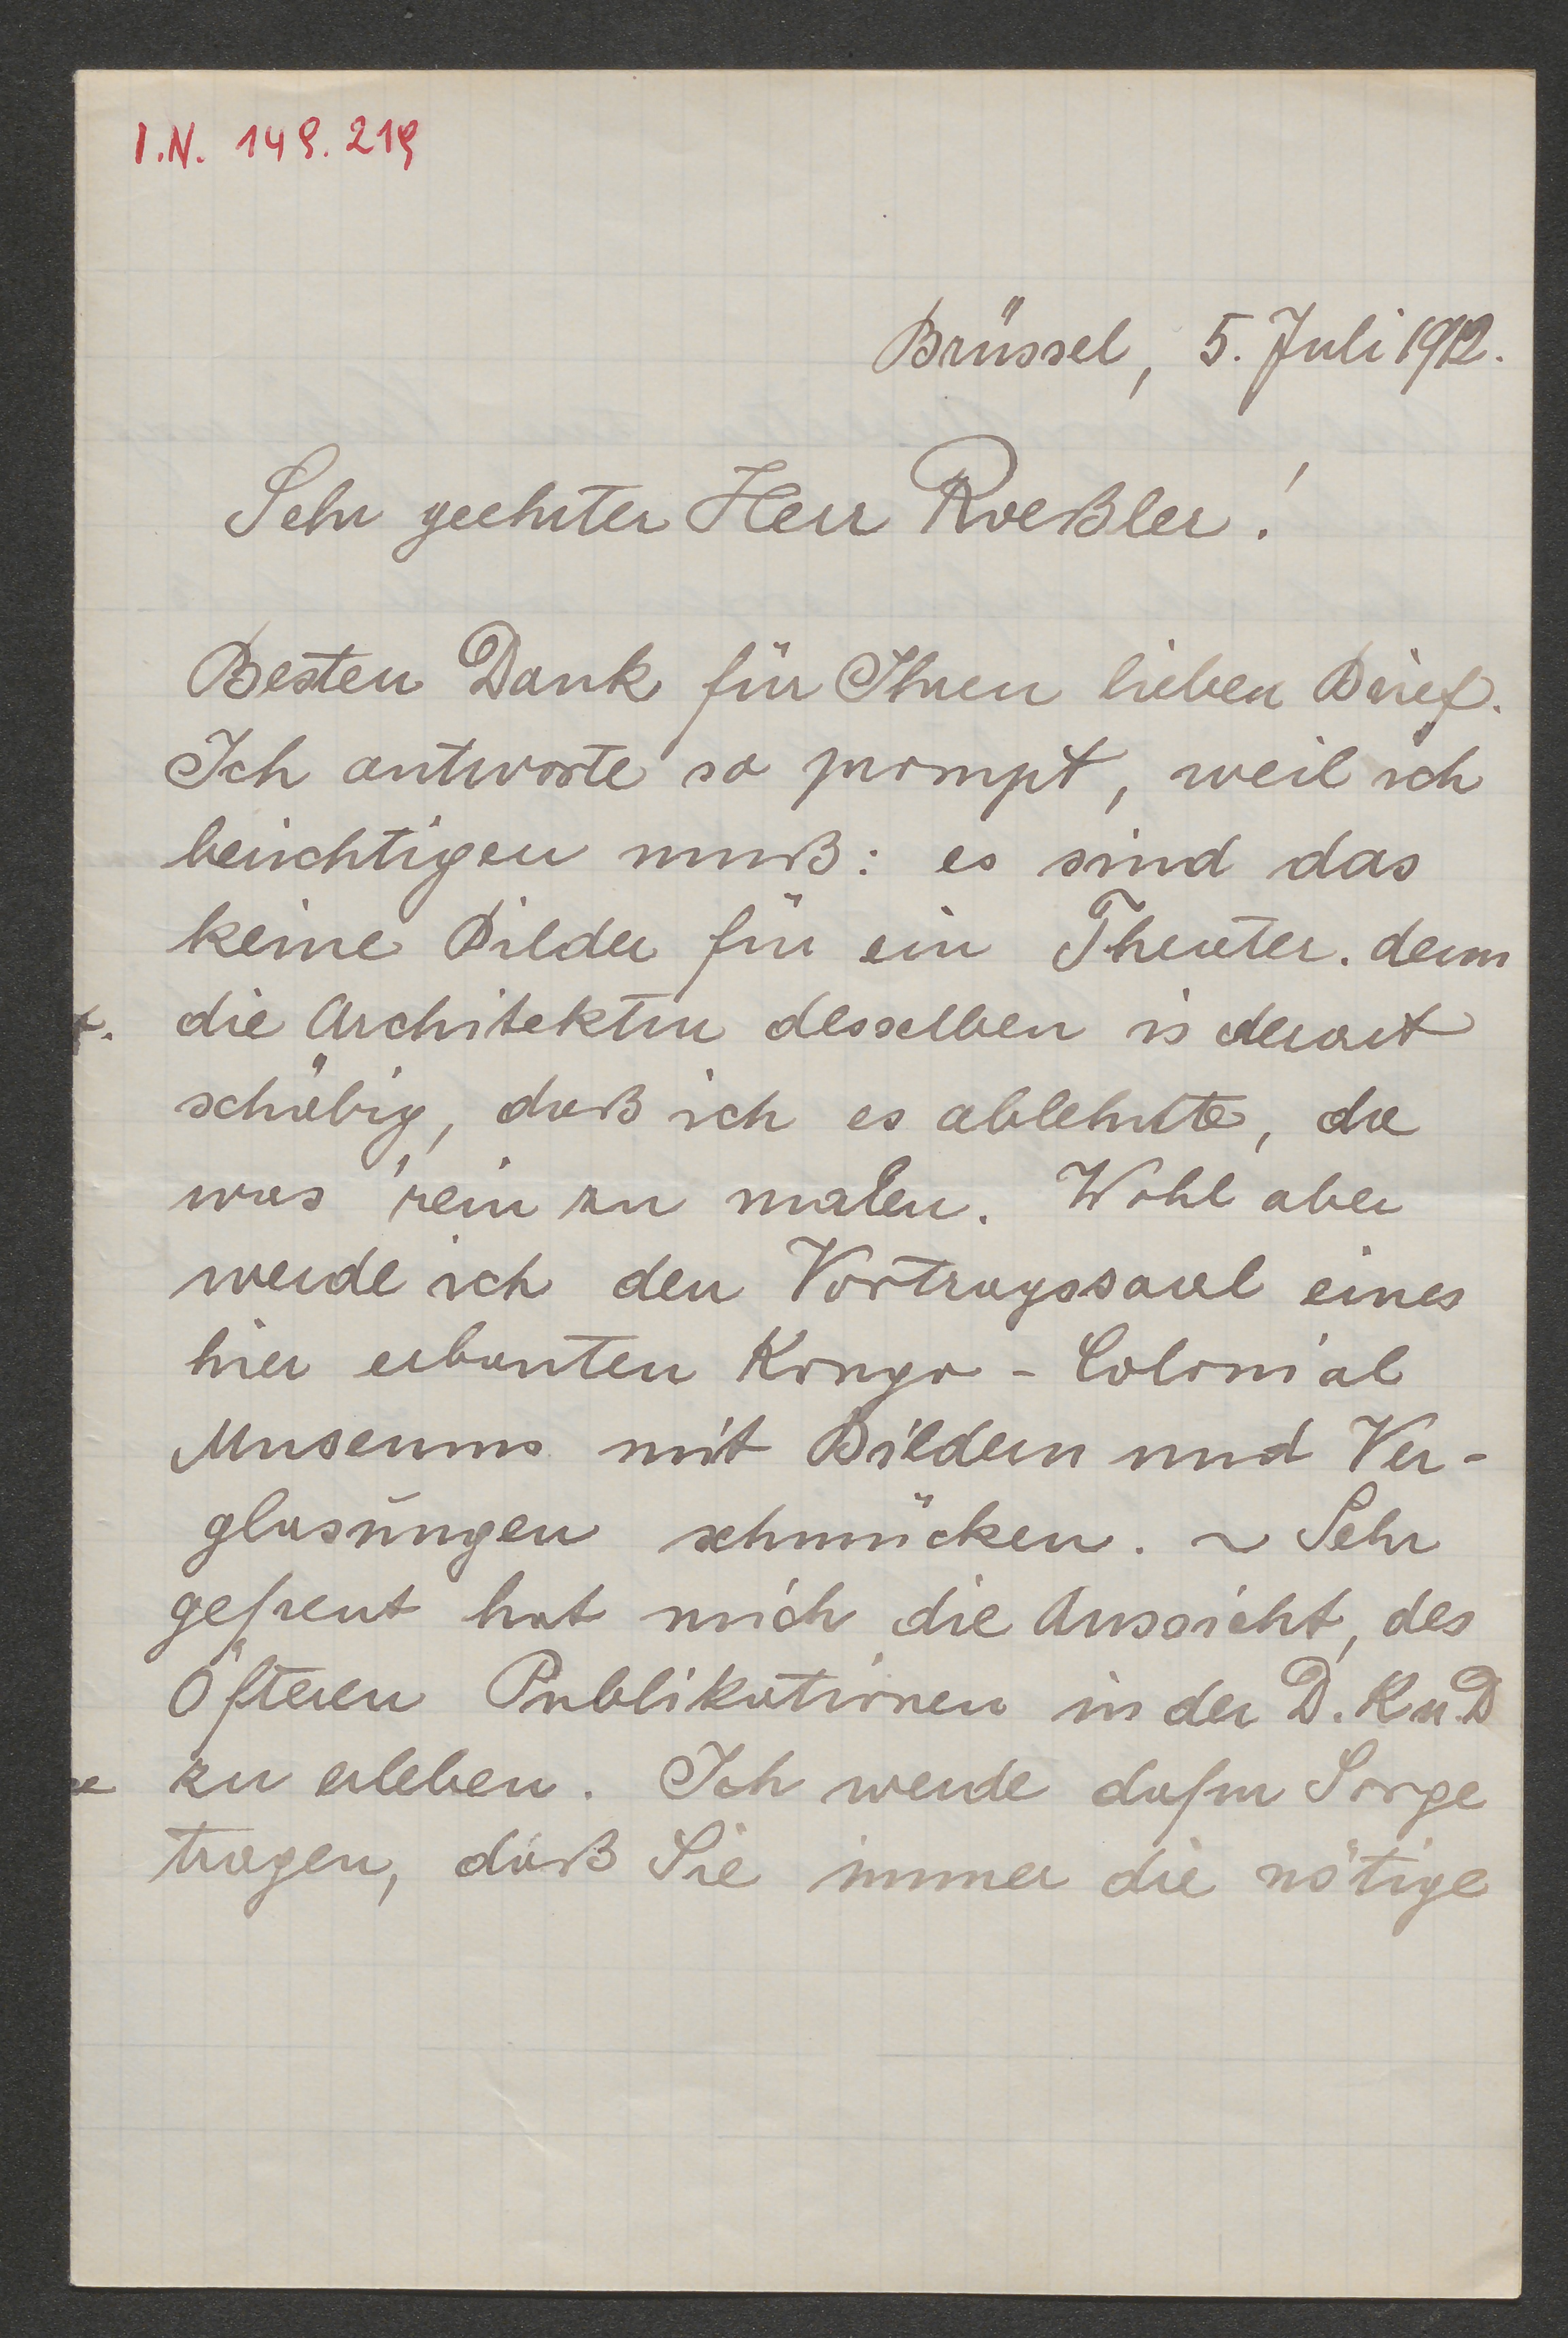 I.N. 149.219
Brüssel, 5. Juli 1912.
Sehr geehrter Herr Roeßler!
Besten Dank für Ihren lieben Brief.
Ich antworte so prompt, weil ich
berichtigen muß: es sind das
keine Bilder für ein Theater. denn
die Architektur desselben is derart
schäbig, daß ich es ablehnte, da
was 'rein zu malen. Wohl aber
werde ich den Vortragssaal eines
hier erbauten Kongo-Colonial
Museums mit Bildern und Ver-
glasungen schmücken. ~ Sehr
gefreut hat mich die Aussicht, des
Öfteren Publikationen in der D. K u. D
zu erleben. Ich werde dafür Sorge
tragen, daß Sie immer die nötige